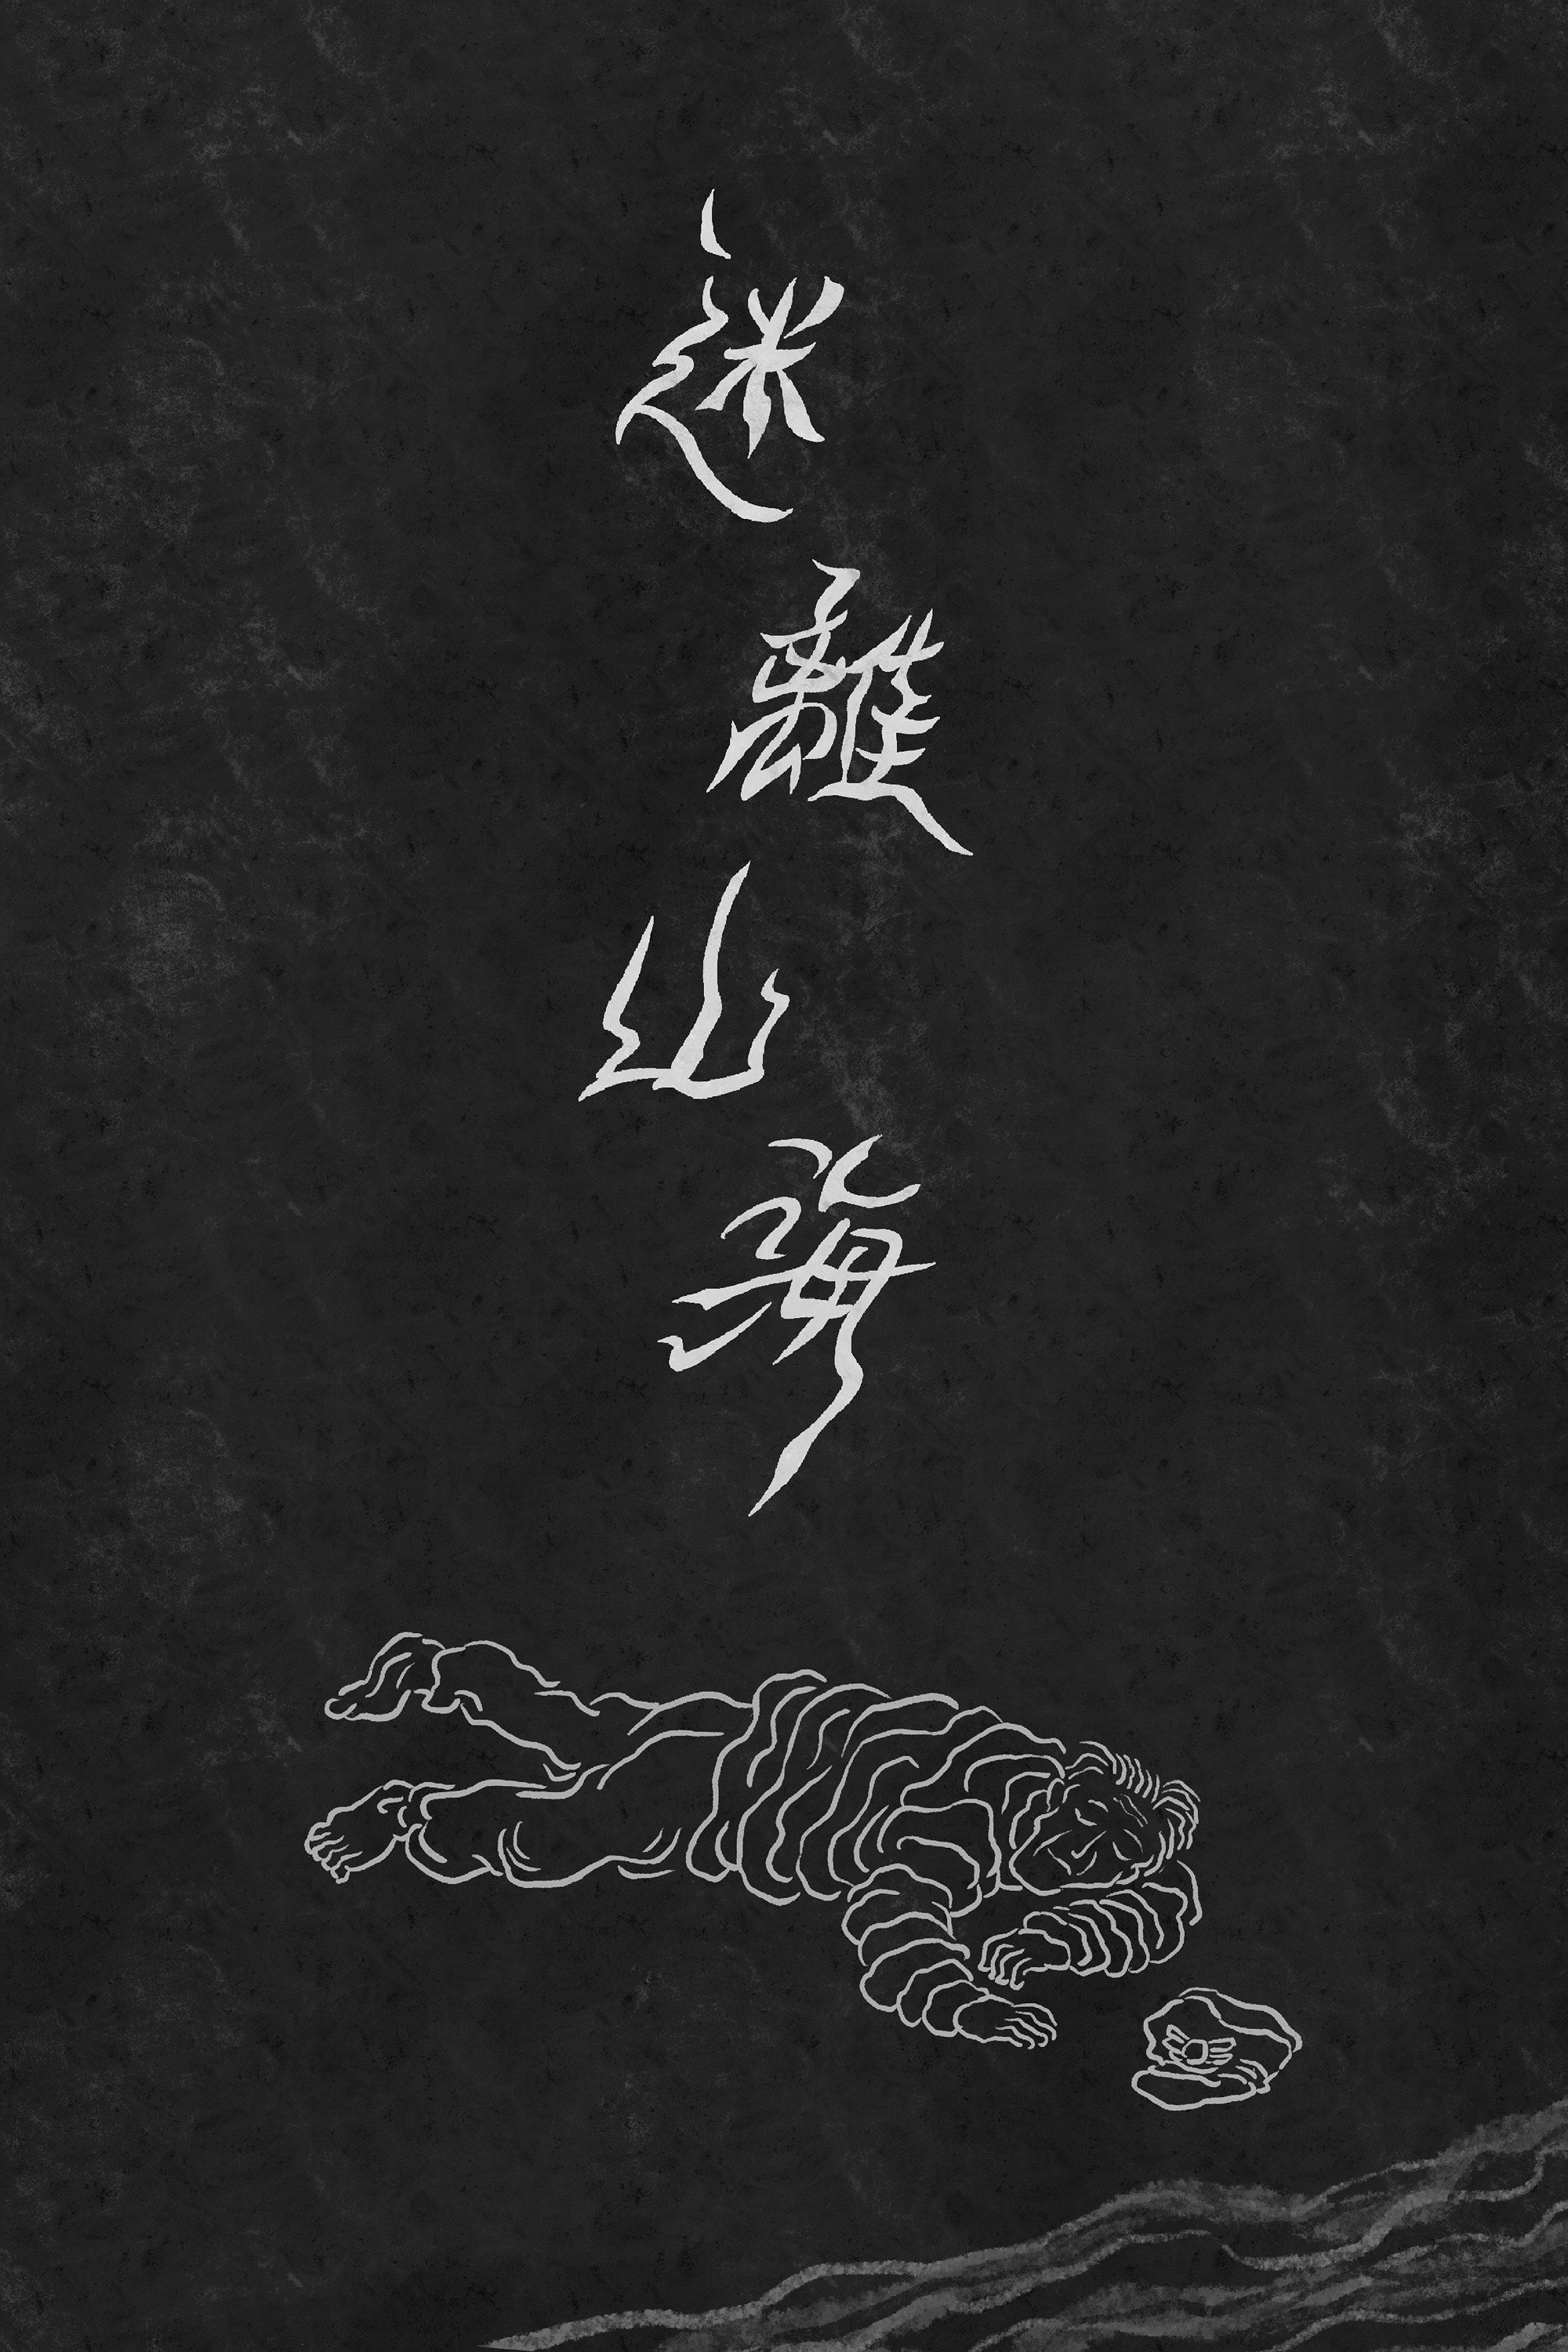 迷離山海